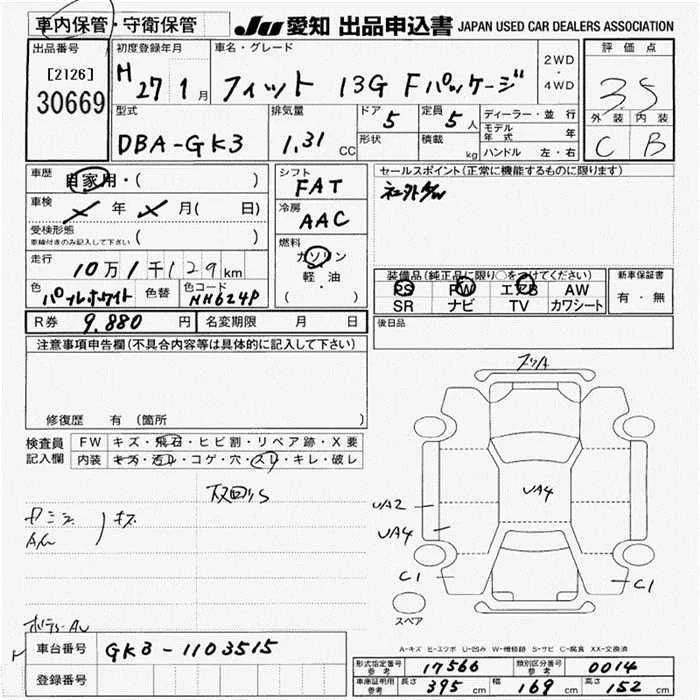 車内保管・守衛保管
JU 愛知 出品申込書 JAPAN USED CAR DEALERS ASSOCIATION
出品番号
[2126]
30669
初度登録年月
H 27 1月
車名・グレード
フィット 13G Fパッケージ
2WD
・
4WD
評価点
3.5
外装 内装
C B
型式
DBA-GK3
排気量
1.31 CC
ドア 5
形状
定員 5人
積載 kg
ディーラー・並行
モデル年式 年
ハンドル 左・右
車歴 自家用・( )
車検 年 月( 日)
受検形態
車検付きのみ記入して下さい ( )
走行 10万1千129km
色 パールホワイト 色替 色コード NH624P
R券 9,880円 名変期限 月 日
シフト
FAT
冷房
AAC
燃料
ガソリン
軽・油
・
( )
セールスポイント(正常に機能するものに限ります)
装備品(純正品に限り○をつけてください)
PS PW エアB AW
SR ナビ TV カワシート
新車保証書
有・無
後日品
注意事項申告欄(不具合内容等は具体的に記入して下さい)
修復歴 有(箇所 )
検査員記入欄
FW キズ・飛石・ヒビ割・リペア跡・X要
内装 キズ・汚レ・コゲ・穴・スレ・キレ・破レ
キズ
UA4
UA2
UA4
C1
C1
スペア
A-キズ E-エクボ U-凹み W-補修跡 S-サビ C-腐食 XX-交換済
車台番号 GK3-1103515
登録番号
形式指定番号参考 17566 類別区分番号参考 0014
車庫証明用参考 長さ 395cm 幅 169cm 高さ 152cm